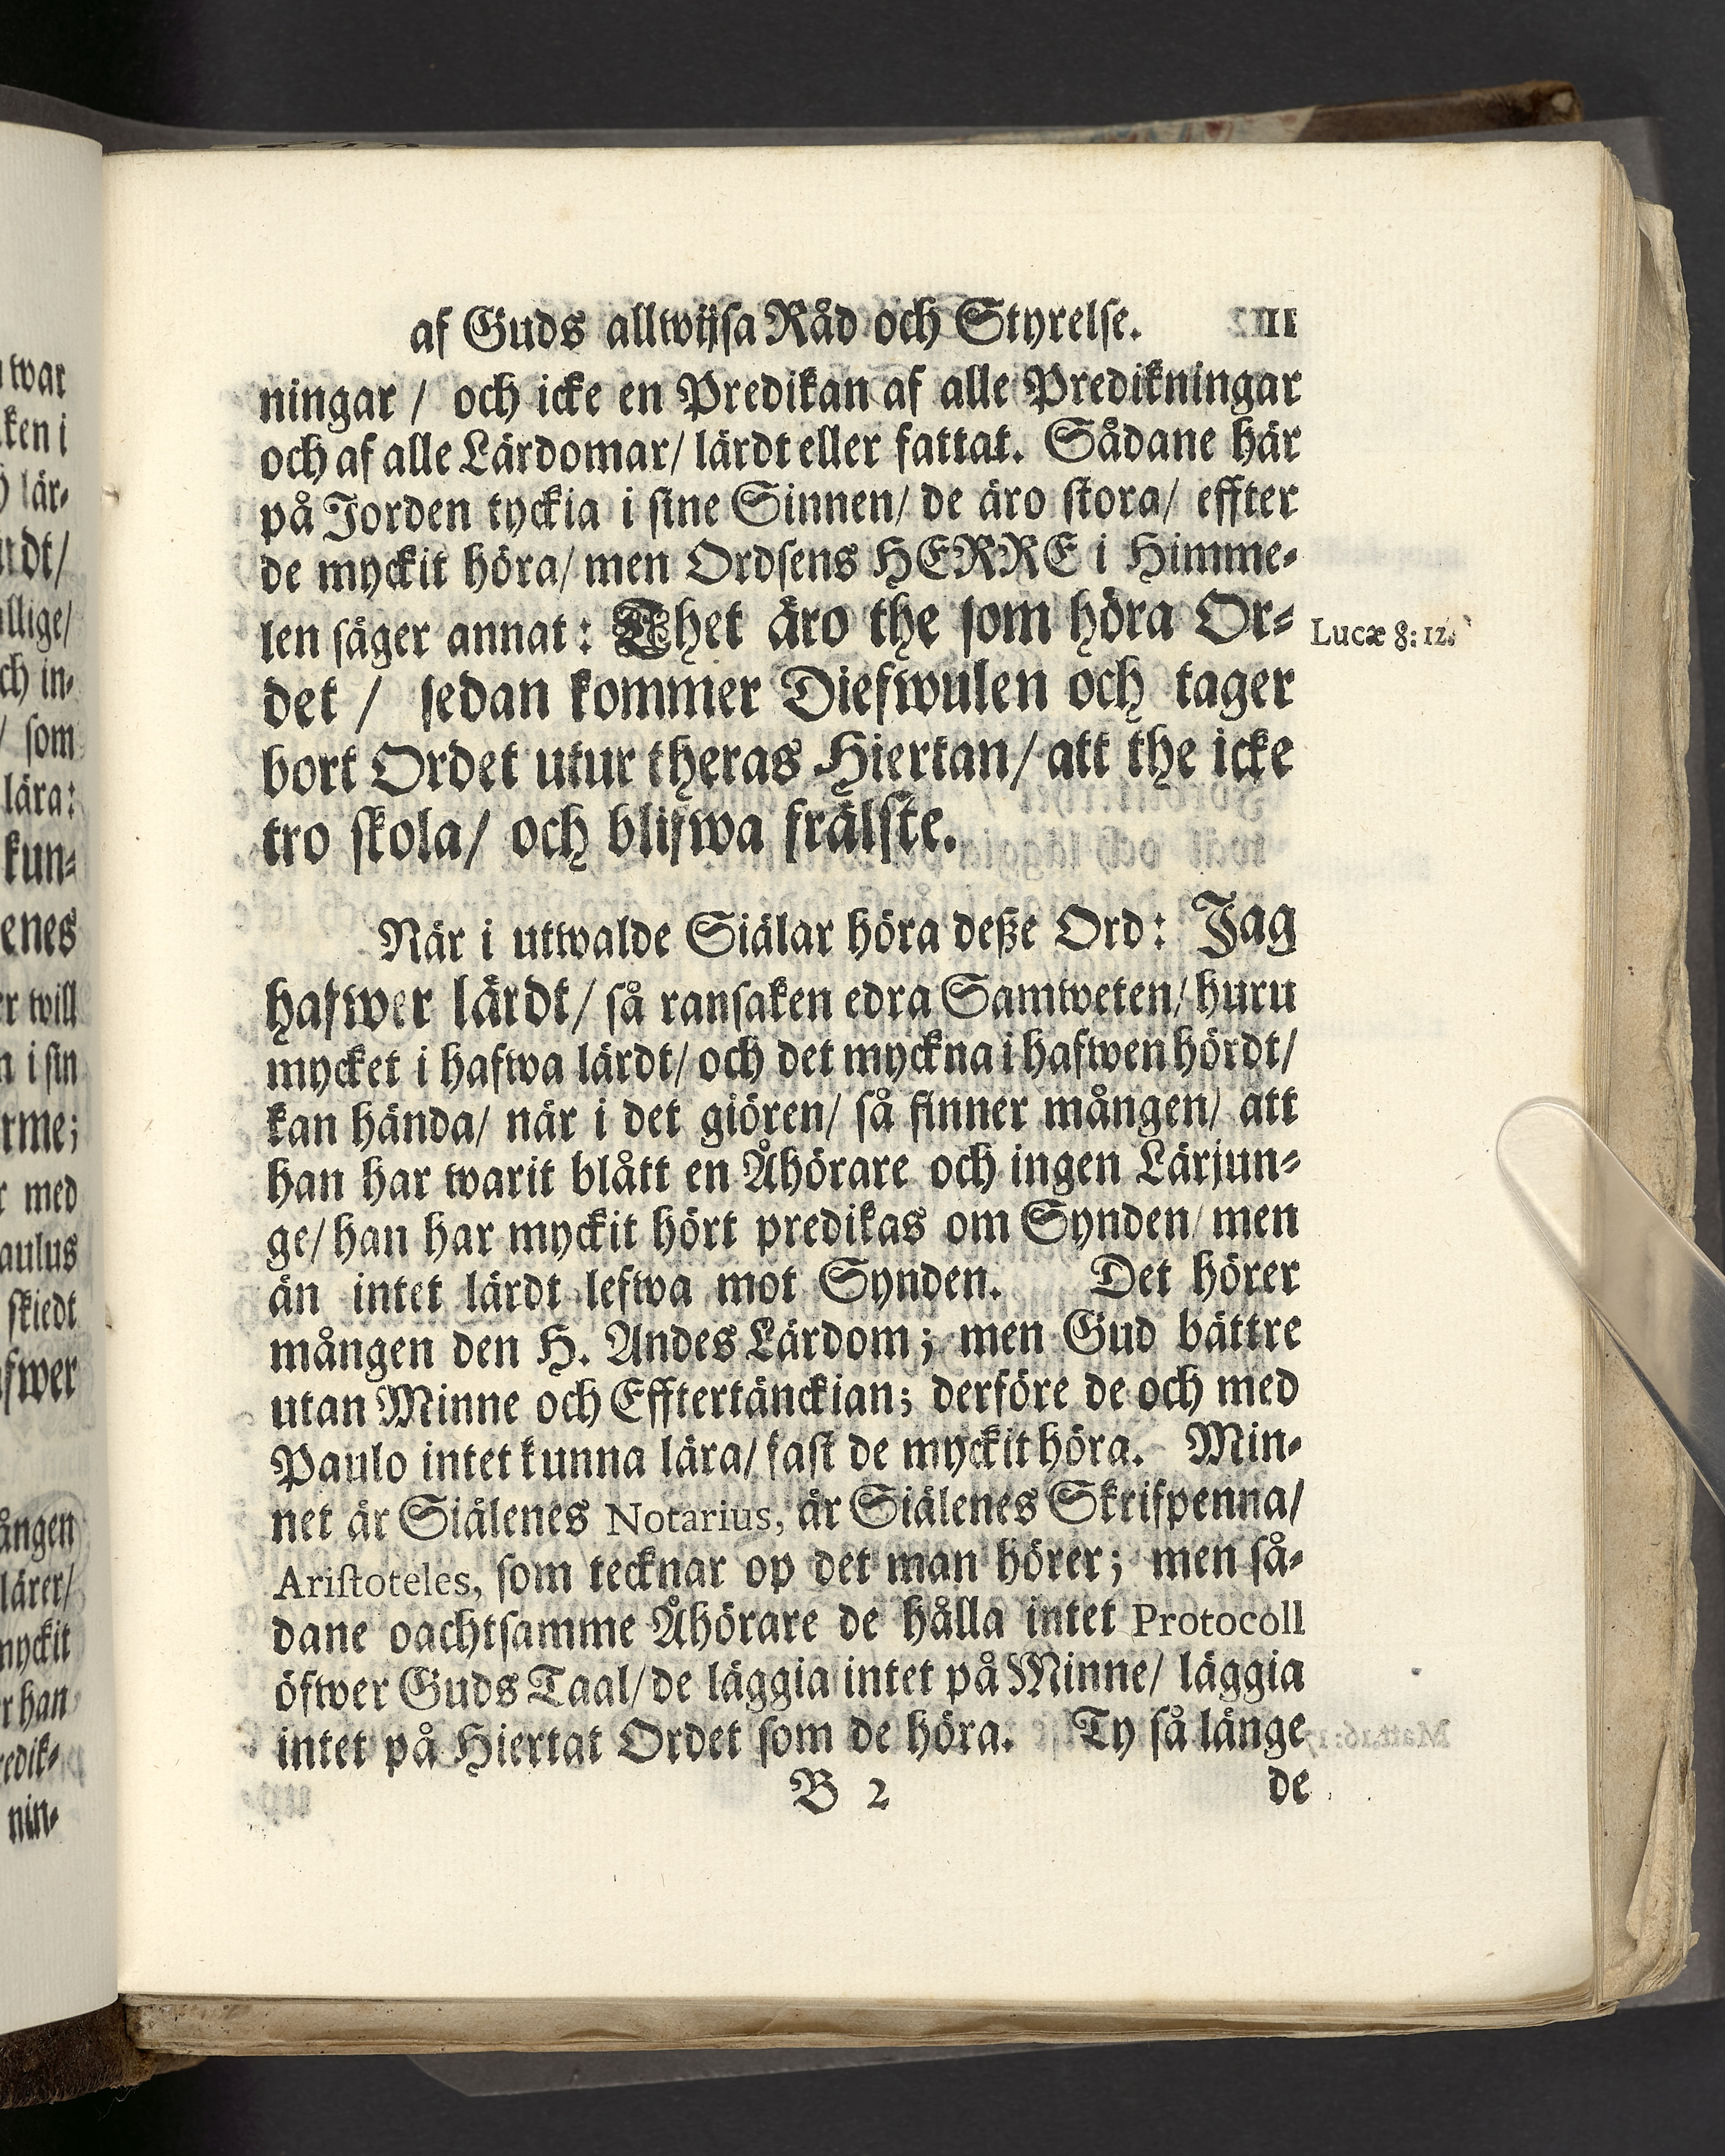 af Guds allwijsa Råd och Styrelse. 11
ningar / och icke en Predikan af alle Predikningar
och af alle Lärdomar/ lärdt eller fattat. Sådane här
på Jorden tyckia i sine Sinnen/ de äro stora/ effter
de myckit höra/ men Ordsens HERRE i Himme-
len säger annat: Thet äro the som höra Or-
Lucæ 8: 12.
det / sedan kommer Diefwulen och tager
bort Ordet utur theras Hiertan/ att the icke
tro skola/ och blifwa frälste.
När i utwalde Siälar höra deße Ord: Jag
hafwer lärdt/ så ransaken edra Samweten/ huru
mycket i hafwa lärdt/ och det myckna i hafwen hördt/
kan hända/ när i det giören/ så finner mången/ att
han har warit blått en Åhörare och ingen Lärjun-
ge/ han har myckit hört predikas om Synden/ men
än intet lärdt lefwa mot Synden. Det hörer
mången den H. Andes Lärdom; men Gud bättre
utan Minne och Efftertänckian; derföre de och med
Paulo intet kunna lära/ fast de myckit höra. Min-
net är Siälenes Notarius, är Siälenes Skrifpenna/
Aristoteles, som tecknar op det man hörer; men så-
dane oachtsamme Åhörare de hålla intet Protocoll
öfwer Guds Taal/ de läggia intet på Minne/ läggia
intet på Hiertat Ordet som de höra. Ty så länge
B 2 de